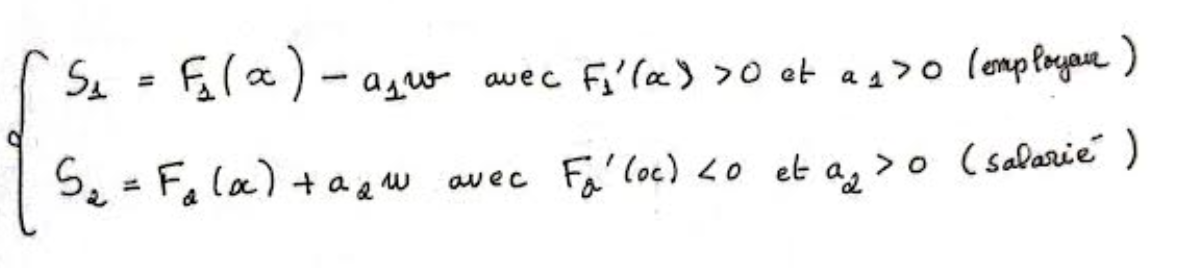 S₁ = F₁(x) − a₁w avec F₁'(x) > 0 et a₁ > 0 (employeur)
S₂ = F₂(x) + a₂w avec F₂'(x) < 0 et a₂ > 0 (salarié)